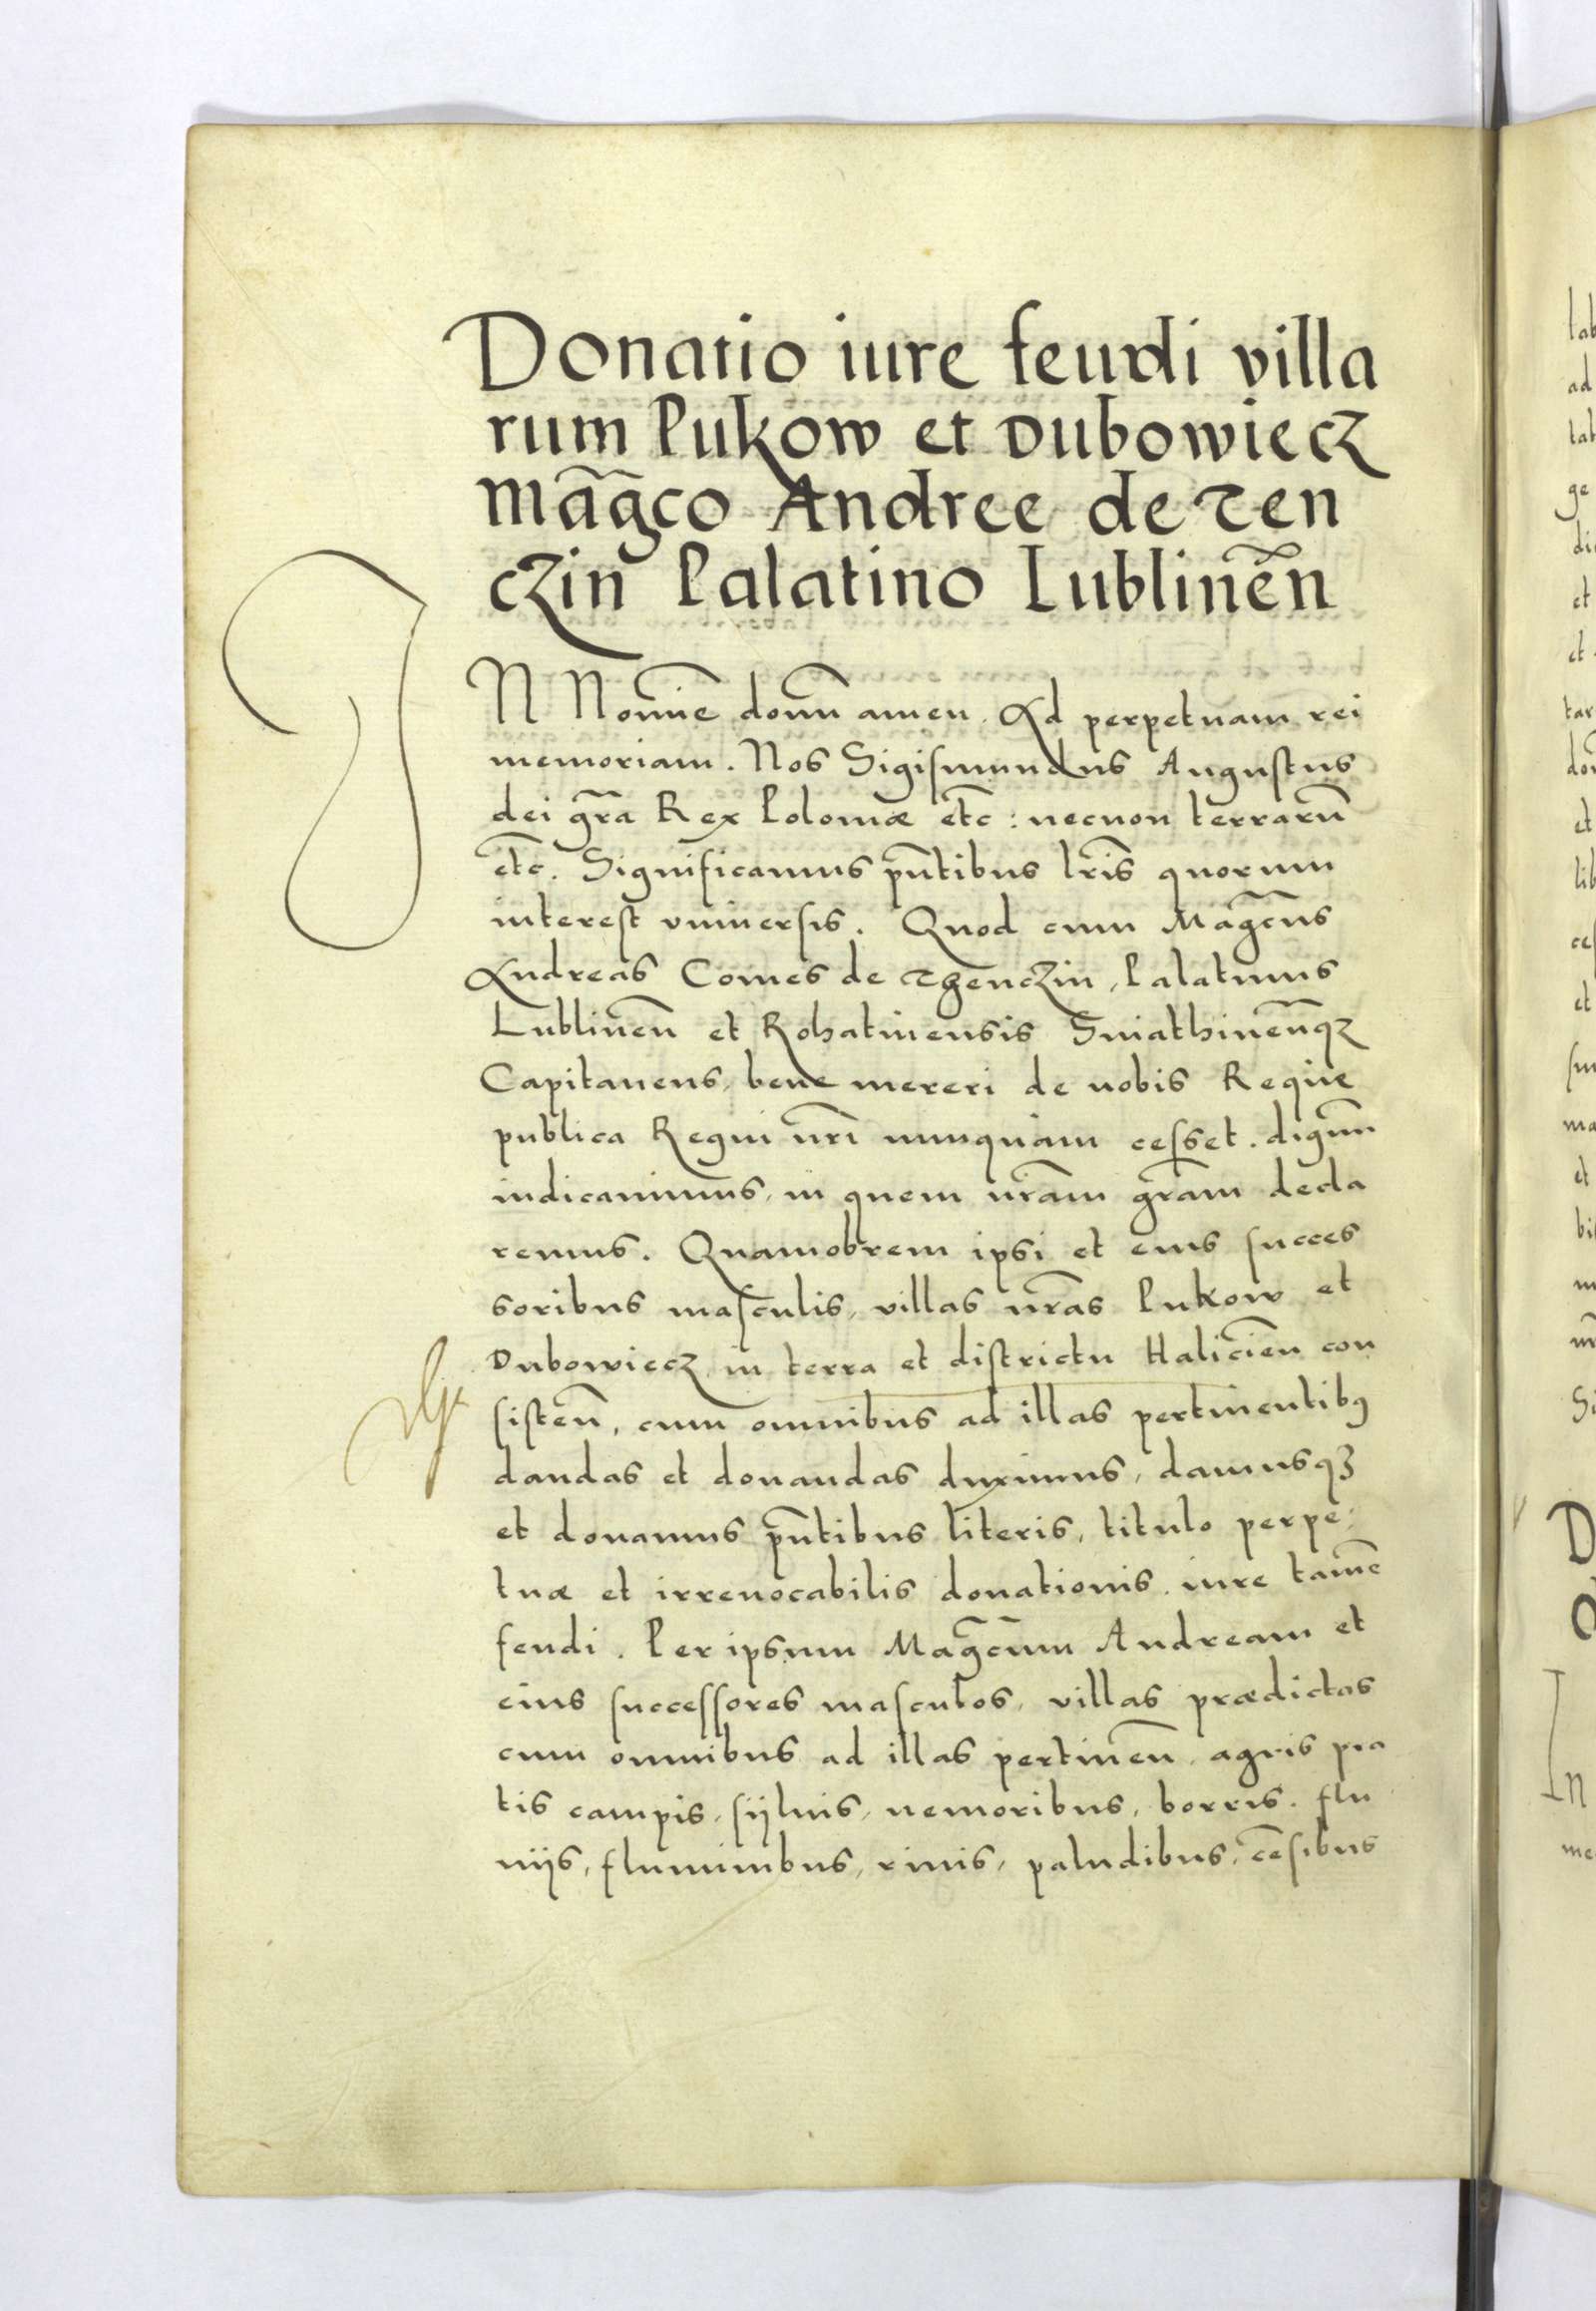 Donatio iure feudi villa
rum Pukow et Dubowiecz
Mãgco Andree de Ten
czin Palatino Lublineñ
IN Noiñe doñi amen. Ad perpetuam rei
memoriam. Nos Sigismundus Augustus
dei gr̃a Rex Poloniæ etc̃: necnon terrarũ
etc̃. Significamus pñtibus lr̃is quorum
interest vniuersis. Quod cum Mag̃cus
Andreas Comes de Thenczin, Palatinus
Lublineñ et Rohatinensis Sniathineñqz
Capitaneus, bene mereri de nobis Reque
publica Regni nr̃i nunquam cesset. dignũ
iudicauimus, in quem nr̃am gr̃am decla
remus. Quamobrem ipsi et eius succes
soribus masculis, villas nr̃as Pukow et
Dubowiecz in terra et districtu Halicieñ con
sisteñ, cum omnibus ad illas pertinentibus
dandas et donandas duximus, damusqz
et donamus pñtibus literis, titulo perpe:
tuæ et irreuocabilis donationis. iure tamẽ
feudi. Per ipsum Mag̃cum Andream et
eius successores masculos, villas prædictas
cum omnibus ad illas pertineñ, agris pra
tis campis, sijluis, nemoribus, borris. flu
uijs, fluminibus, riuis, paludibus, cẽsibus